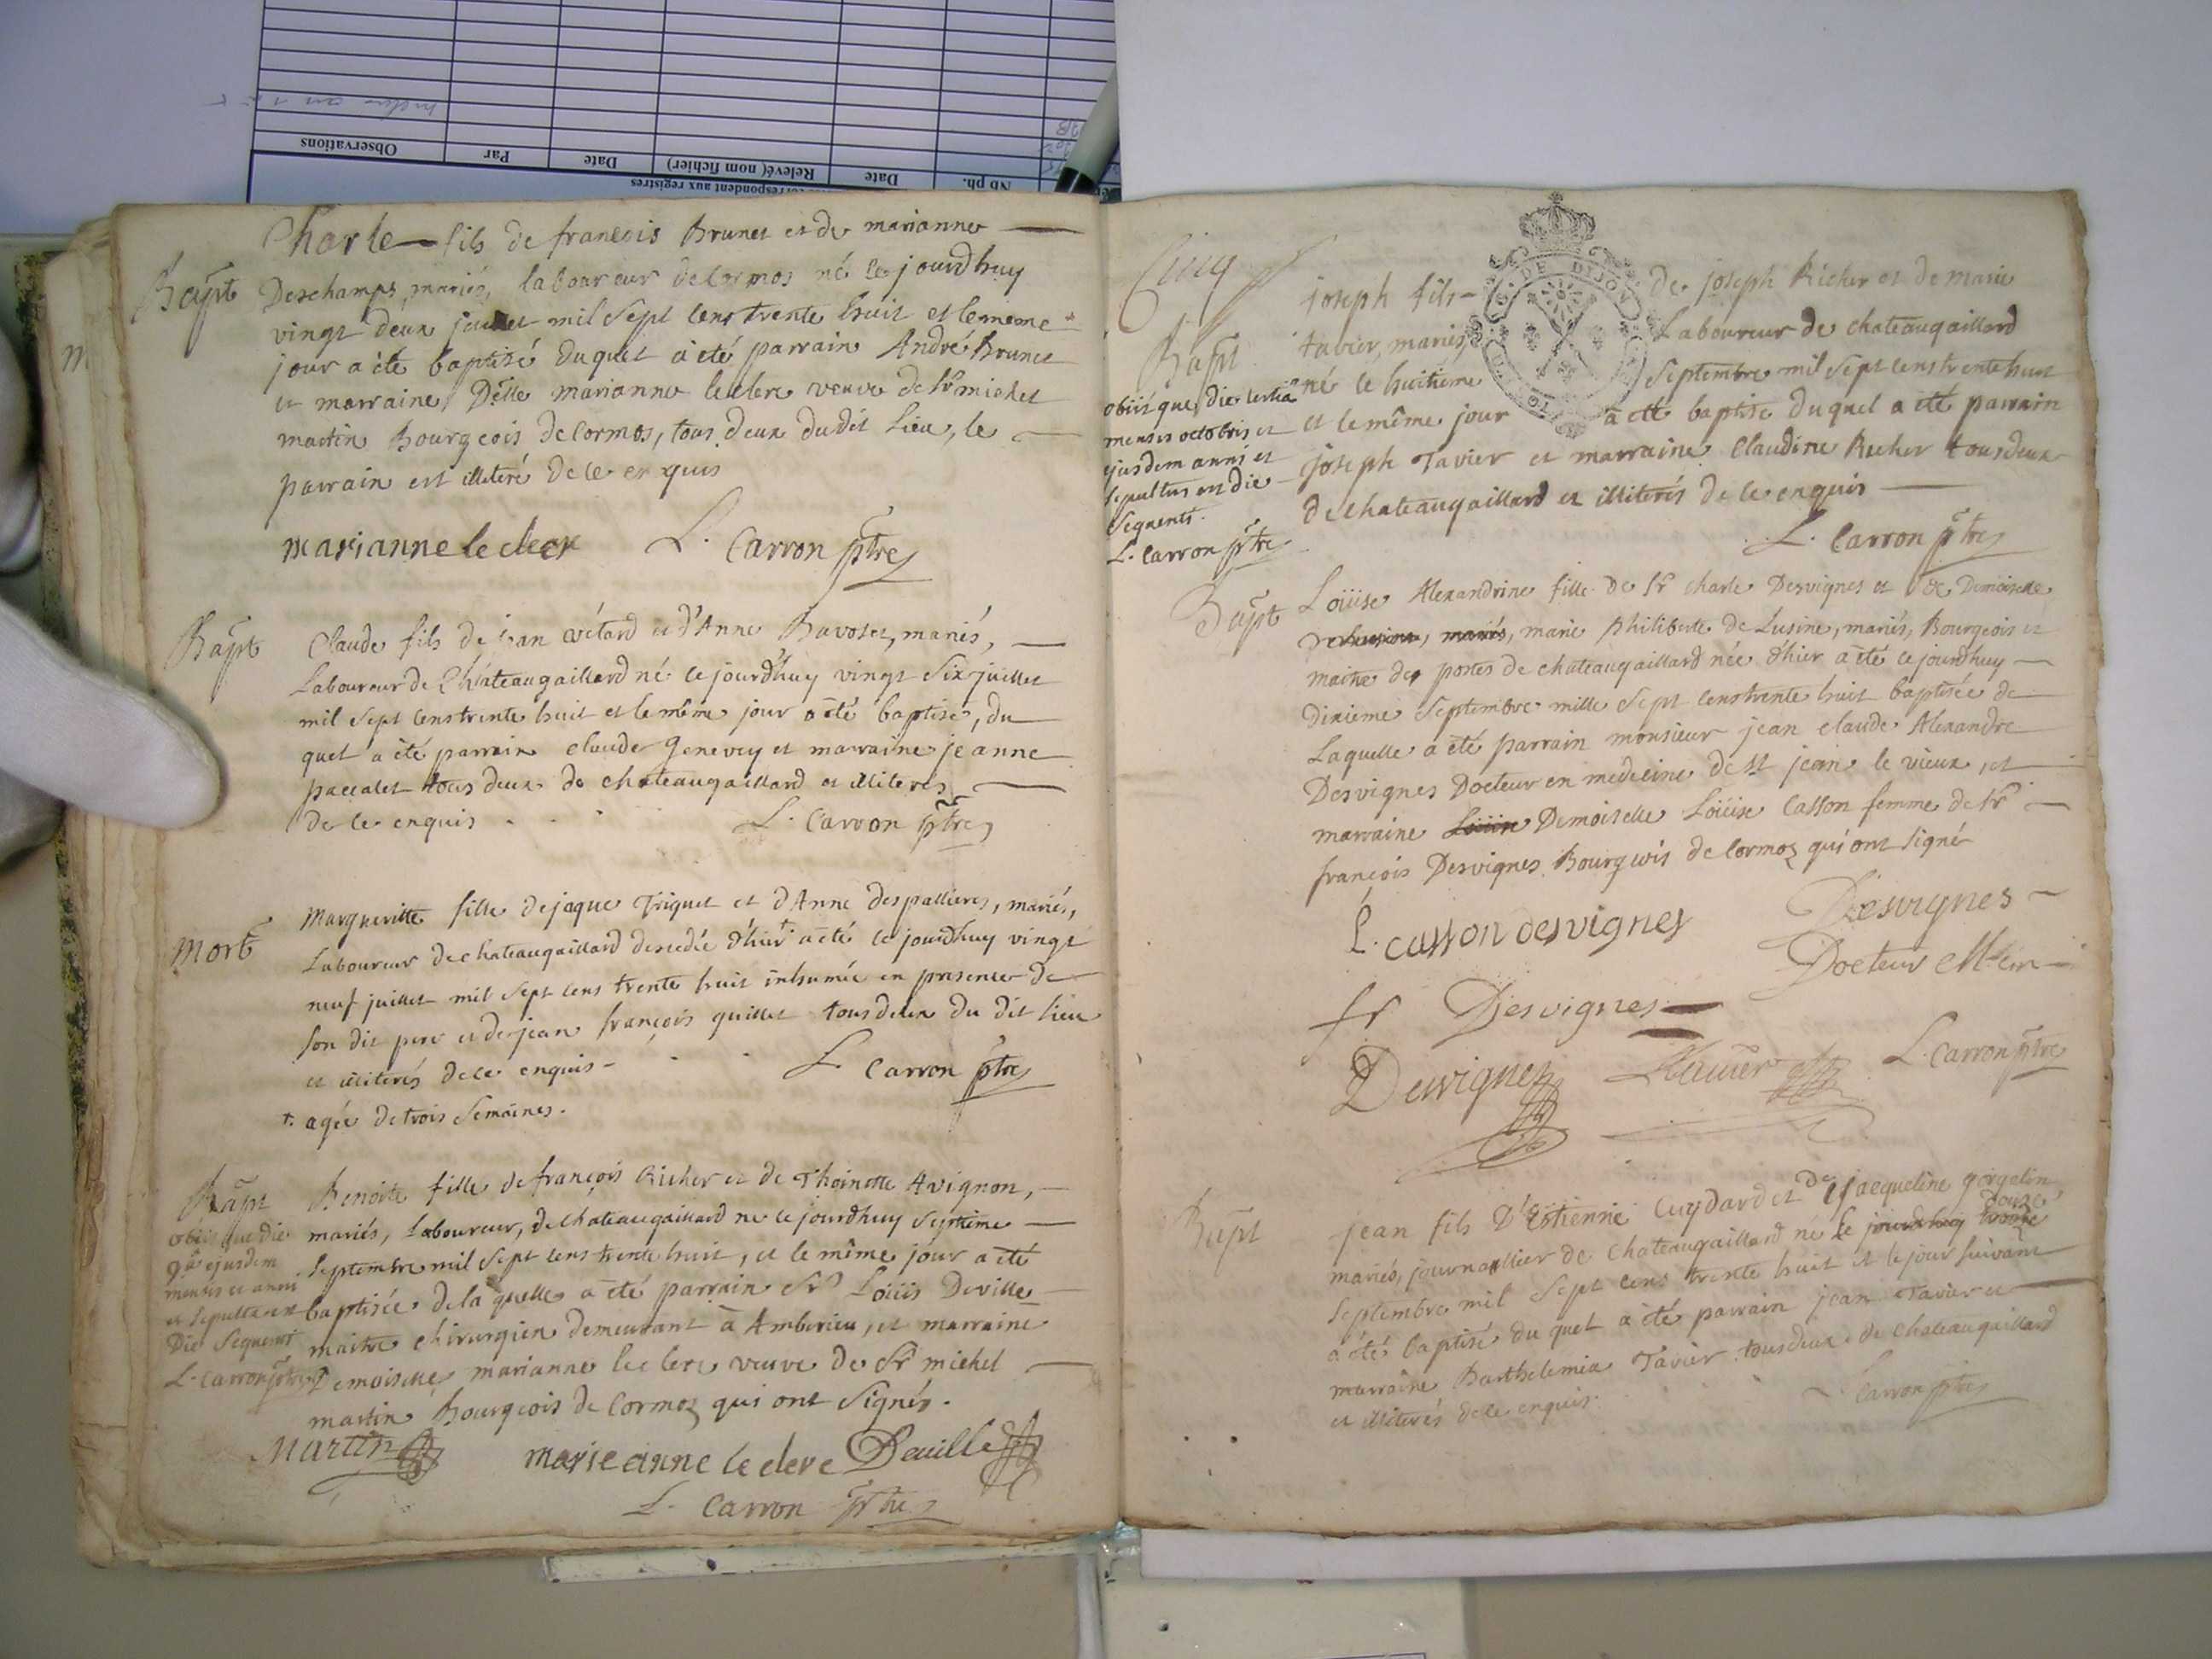 Observations
Par
Date
Relevé( nom fichier)
Date
Nb ph.
correspondent aux registres
Charle fils de francois Brunet et de marianne
Bapt
Deschamps, mariés, laboureur de Cormos né le jourdhuy
vingt deux juillet mil sept cens trente huit et le meme
jour a été baptisé duquel a été parrain André Brunet
et marraine, Délle marianne leclerc veuve de Sr michel
martin Bourgeois de Cormos, tous deux dudit Lieu, le
parrain est illiteré de ce enquis
marianne le clecr L. Carron ptre
Bapt
Claude fils de jean vétard et d'Anne Bavoset, mariés,
Laboureur de Châteaugaillard né le jourdhuy vingt six juillet
mil sept cens trente huit et le même jour a été baptisé, du
quel a été parrain claude Genevey et marraine jeanne
paccalet tous deux de chateaugaillard et illiterés
de ce enquis
L. Carron ptre
Mort
Margueritte fille de jaque Triguet et d'Anne despallieres, mariés,
Laboureur de chateaugaillard descedée d'hier + a été le jourdhuy vingt
neuf juillet mil sept cens trente huit inhumée en presence de
son dit pere et de jean françois guillet tous deux du dit lieu
et illiterés de ce enquis
L Carron ptre
+ agée de trois semaines.
Bapt
Benoite fille de françois Richer et de Thoinette Avignon,
mariés, Laboureur, de chateaugaillard ne le jourdhuy septième
septembre mil sept cens trente huit, et le même jour a été
baptisée de la quelle a été parrain Sr Loüis Deville
maitre chirurgien demeurant à Amberieu, et marraine
Demoiselle marianne leclerc veuve de Sr michel
martin Bourgeois de Cormoz qui ont signés.
obiit que die
9a ejusdem
mensis et anni
et sepulta est
Die sequenti
L. Carron ptre
Martin marie anne le clerc Deville
L. Carron ptre
Cinq
G. DE DIJON
Bapt
joseph fils de joseph Richer et de marie
tavier, mariés, Laboureur de chateaugaillard
né le huitième septembre mil sept cens trente huit
et le même jour a été baptisé duquel a été parrain
joseph Tavier et marraine Claudine Richer tous deux
de chateaugaillard et illiterés de ce enquis
obiit que die tertia
mensis octobris et
ejusdem anni et
sepultus est die
sequenti.
L. Carron ptre
L. Carron ptre
Bapt
Loüise Alexandrine fille de Sr charle Desvignes et de Demoiselle
de Lusine, mariés, marie philiberte de Lusine, mariés, Bourgeois et
maitre des postes de chateaugaillard née d'hier a été le jourdhuy
dixieme septembre mille sept cens trente huit baptisée de
Laquelle a été parrain monsieur jean claude Alexandre
Desvignes Docteur en medecine de St jean le vieux, et
marraine Loüise Demoiselle Loüise Casson femme de Sr
françois Desvignes Bourgeois de Cormoz qui ont signé
L. casson desvignes
Desvignes
Docteur
fr Desvignes
Desvignes
L. Carron ptre
Bapt
jean fils D'Estienne Cuydard et de jacqueline gorgelin
mariés, journallier de chateaugaillard né le jourdhuy treize douze
septembre mil sept cens trente huit et le jour suivant
a été baptisé du quel a été parrain jean Tavier et
marraine Barthelemia Tavier tous deux de chateaugaillard
et illiterés de ce enquis.
Carron ptre